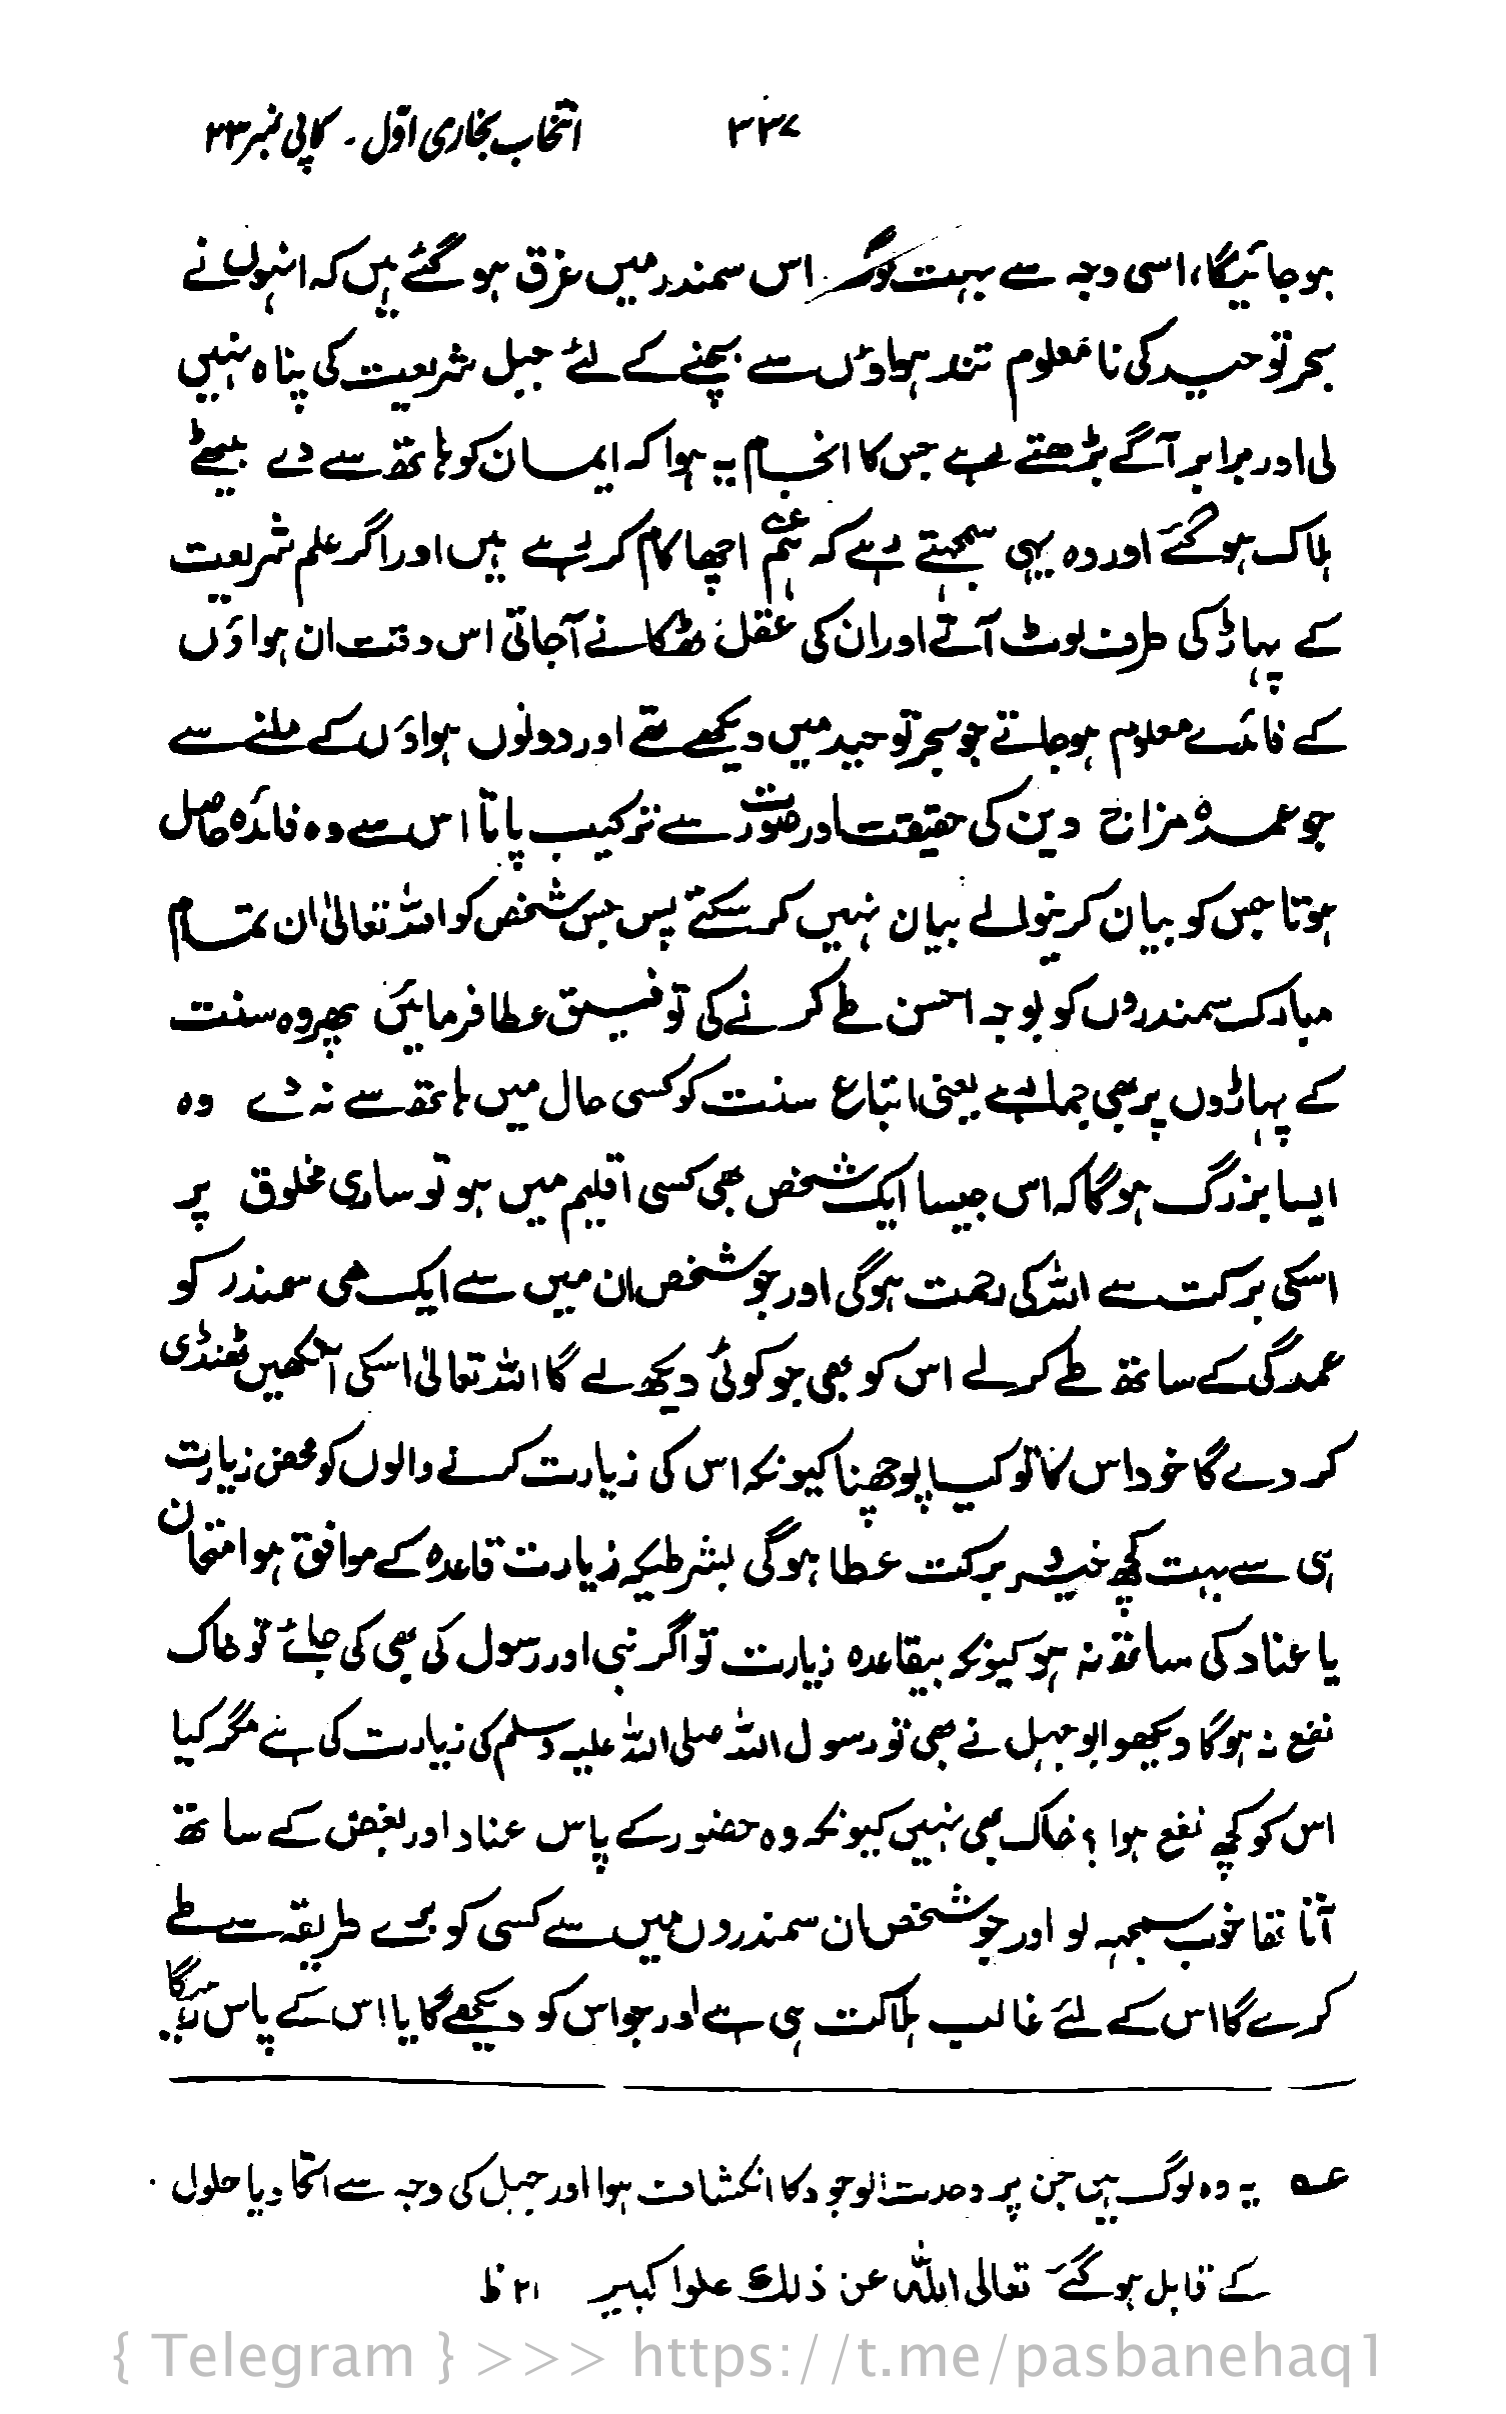 ۳۳۷ انتخاب بخاری اوّل ۔ کاپی نمبر ۲۳
ہو جائیگا، اسی وجہ سے بہت لوگ اس سمندر میں غرق ہو گئے ہیں کہ انہوں نے
بحر توحید کی نا معلوم تند ہواؤں سے بچنے کے لئے جبل شریعت کی پناہ نہیں
لی اور برابر آگے بڑھتے رہے جس کا انجام یہ ہوا کہ ایمان کو ہاتھ سے دے بیٹھے
ہلاک ہوگئے اور وہ یہی سمجھتے رہے کہ ہم عہ اچھا کام کر رہے ہیں اور اگر علم شریعت
کے پہاڑ کی طرف لوٹ آتے اور ان کی عقل ٹھکانے آجاتی اس وقت ان ہواؤں
کے فائدے معلوم ہوجاتے جو بحر توحید میں دیکھے تھے اور دونوں ہواؤں کے ملنے سے
جو عمدہ مزاج دین کی حقیقت اور صورت سے ترکیب پاتا اس سے وہ فائدہ حاصل
ہوتا جس کو بیان کرنیوالے بیان نہیں کر سکتے پس جس شخص کو اللہ تعالیٰ ان تمام
مبارک سمندروں کو بوجہ احسن طے کرنے کی توفیق عطا فرمائیں پھر وہ سنت
کے پہاڑوں پر بھی جما رہے یعنی اتباع سنت کو کسی حال میں ہاتھ سے نہ دے وہ
ایسا بزرگ ہوگا کہ اس جیسا ایک شخص بھی کسی اقلیم میں ہو تو ساری مخلوق پر
اسکی برکت سے اللہ کی رحمت ہوگی اور جو شخص ان میں سے ایک ہی سمندر کو
عمدگی کے ساتھ طے کرلے اس کو بھی جو کوئی دیکھ لے گا اللہ تعالیٰ اسکی آنکھیں ٹھنڈی
کر دے گا خود اس کا تو کیا پوچھنا کیونکہ اس کی زیارت کرنے والوں کو محض زیارت
ہی سے بہت کچھ خیر و برکت عطا ہوگی بشرطیکہ زیارت قاعدہ کے موافق ہو امتحان
یا عناد کی ساتھ نہ ہو کیونکہ بیقاعدہ زیارت تو اگر نبی اور رسول کی بھی کی جائے تو خاک
نفع نہ ہوگا دیکھو ابوجہل نے بھی تو رسول اللہ صلی اللہ علیہ وسلم کی زیارت کی ہے مگر کیا
اس کو کچھ نفع ہوا ؟ خاک بھی نہیں کیونکہ وہ حضور کے پاس عناد اور بغض کے ساتھ
آتا تھا خوب سمجھ لو اور جو شخص ان سمندروں میں سے کسی کو بُرے طریقہ سے طے
کرے گا اس کے لئے غالب ہلاکت ہی ہے اور جو اس کو دیکھے گا یا اس کے پاس رہیگا
عہ یہ وہ لوگ ہیں جن پر وحدت الوجود کا انکشاف ہوا اور جہل کی وجہ سے اتحاد یا حلول
کے قابل ہوگئے تعالی اللہ عن ذلک علوا کبیر ۱۲ ظ
{ Telegram } >>> https://t.me/pasbanehaq1